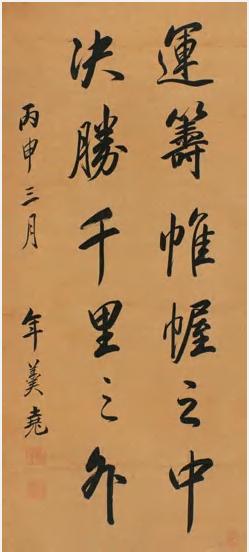 運籌帷幄之中
決勝千里之外
丙申三月 年羹堯